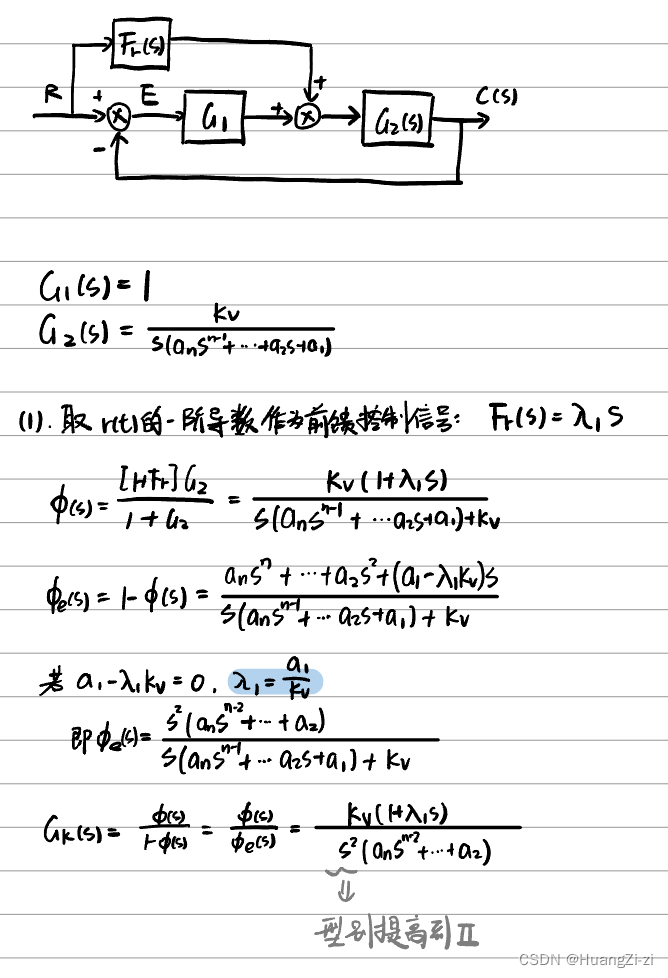 Fr(s)
R + E G₁ + + G₂(s) C(s)
-
G₁(s) = 1
G₂(s) = Kv / s(aₙsⁿ⁻¹+⋯+a₂s+a₁)
(1). 取 r(t)的一阶导数作为前馈控制信号: Fr(s) = λ₁s
ϕ(s) = [1+Fr]G₂ / 1+G₂ = Kv(1+λ₁s) / s(aₙsⁿ⁻¹+⋯a₂s+a₁)+Kv
ϕe(s) = 1-ϕ(s) = aₙsⁿ+⋯+a₂s²+(a₁-λ₁Kv)s / s(aₙsⁿ⁻¹+⋯a₂s+a₁)+Kv
若 a₁-λ₁Kv = 0, λ₁ = a₁/Kv
即 ϕe(s) = s²(aₙsⁿ⁻²+⋯+a₂) / s(aₙsⁿ⁻¹+⋯a₂s+a₁)+Kv
Gk(s) = ϕ(s) / 1-ϕ(s) = ϕ(s) / ϕe(s) = Kv(1+λ₁s) / s²(aₙsⁿ⁻²+⋯+a₂)
⇓
型别提高到Ⅱ
CSDN @HuangZi-zi